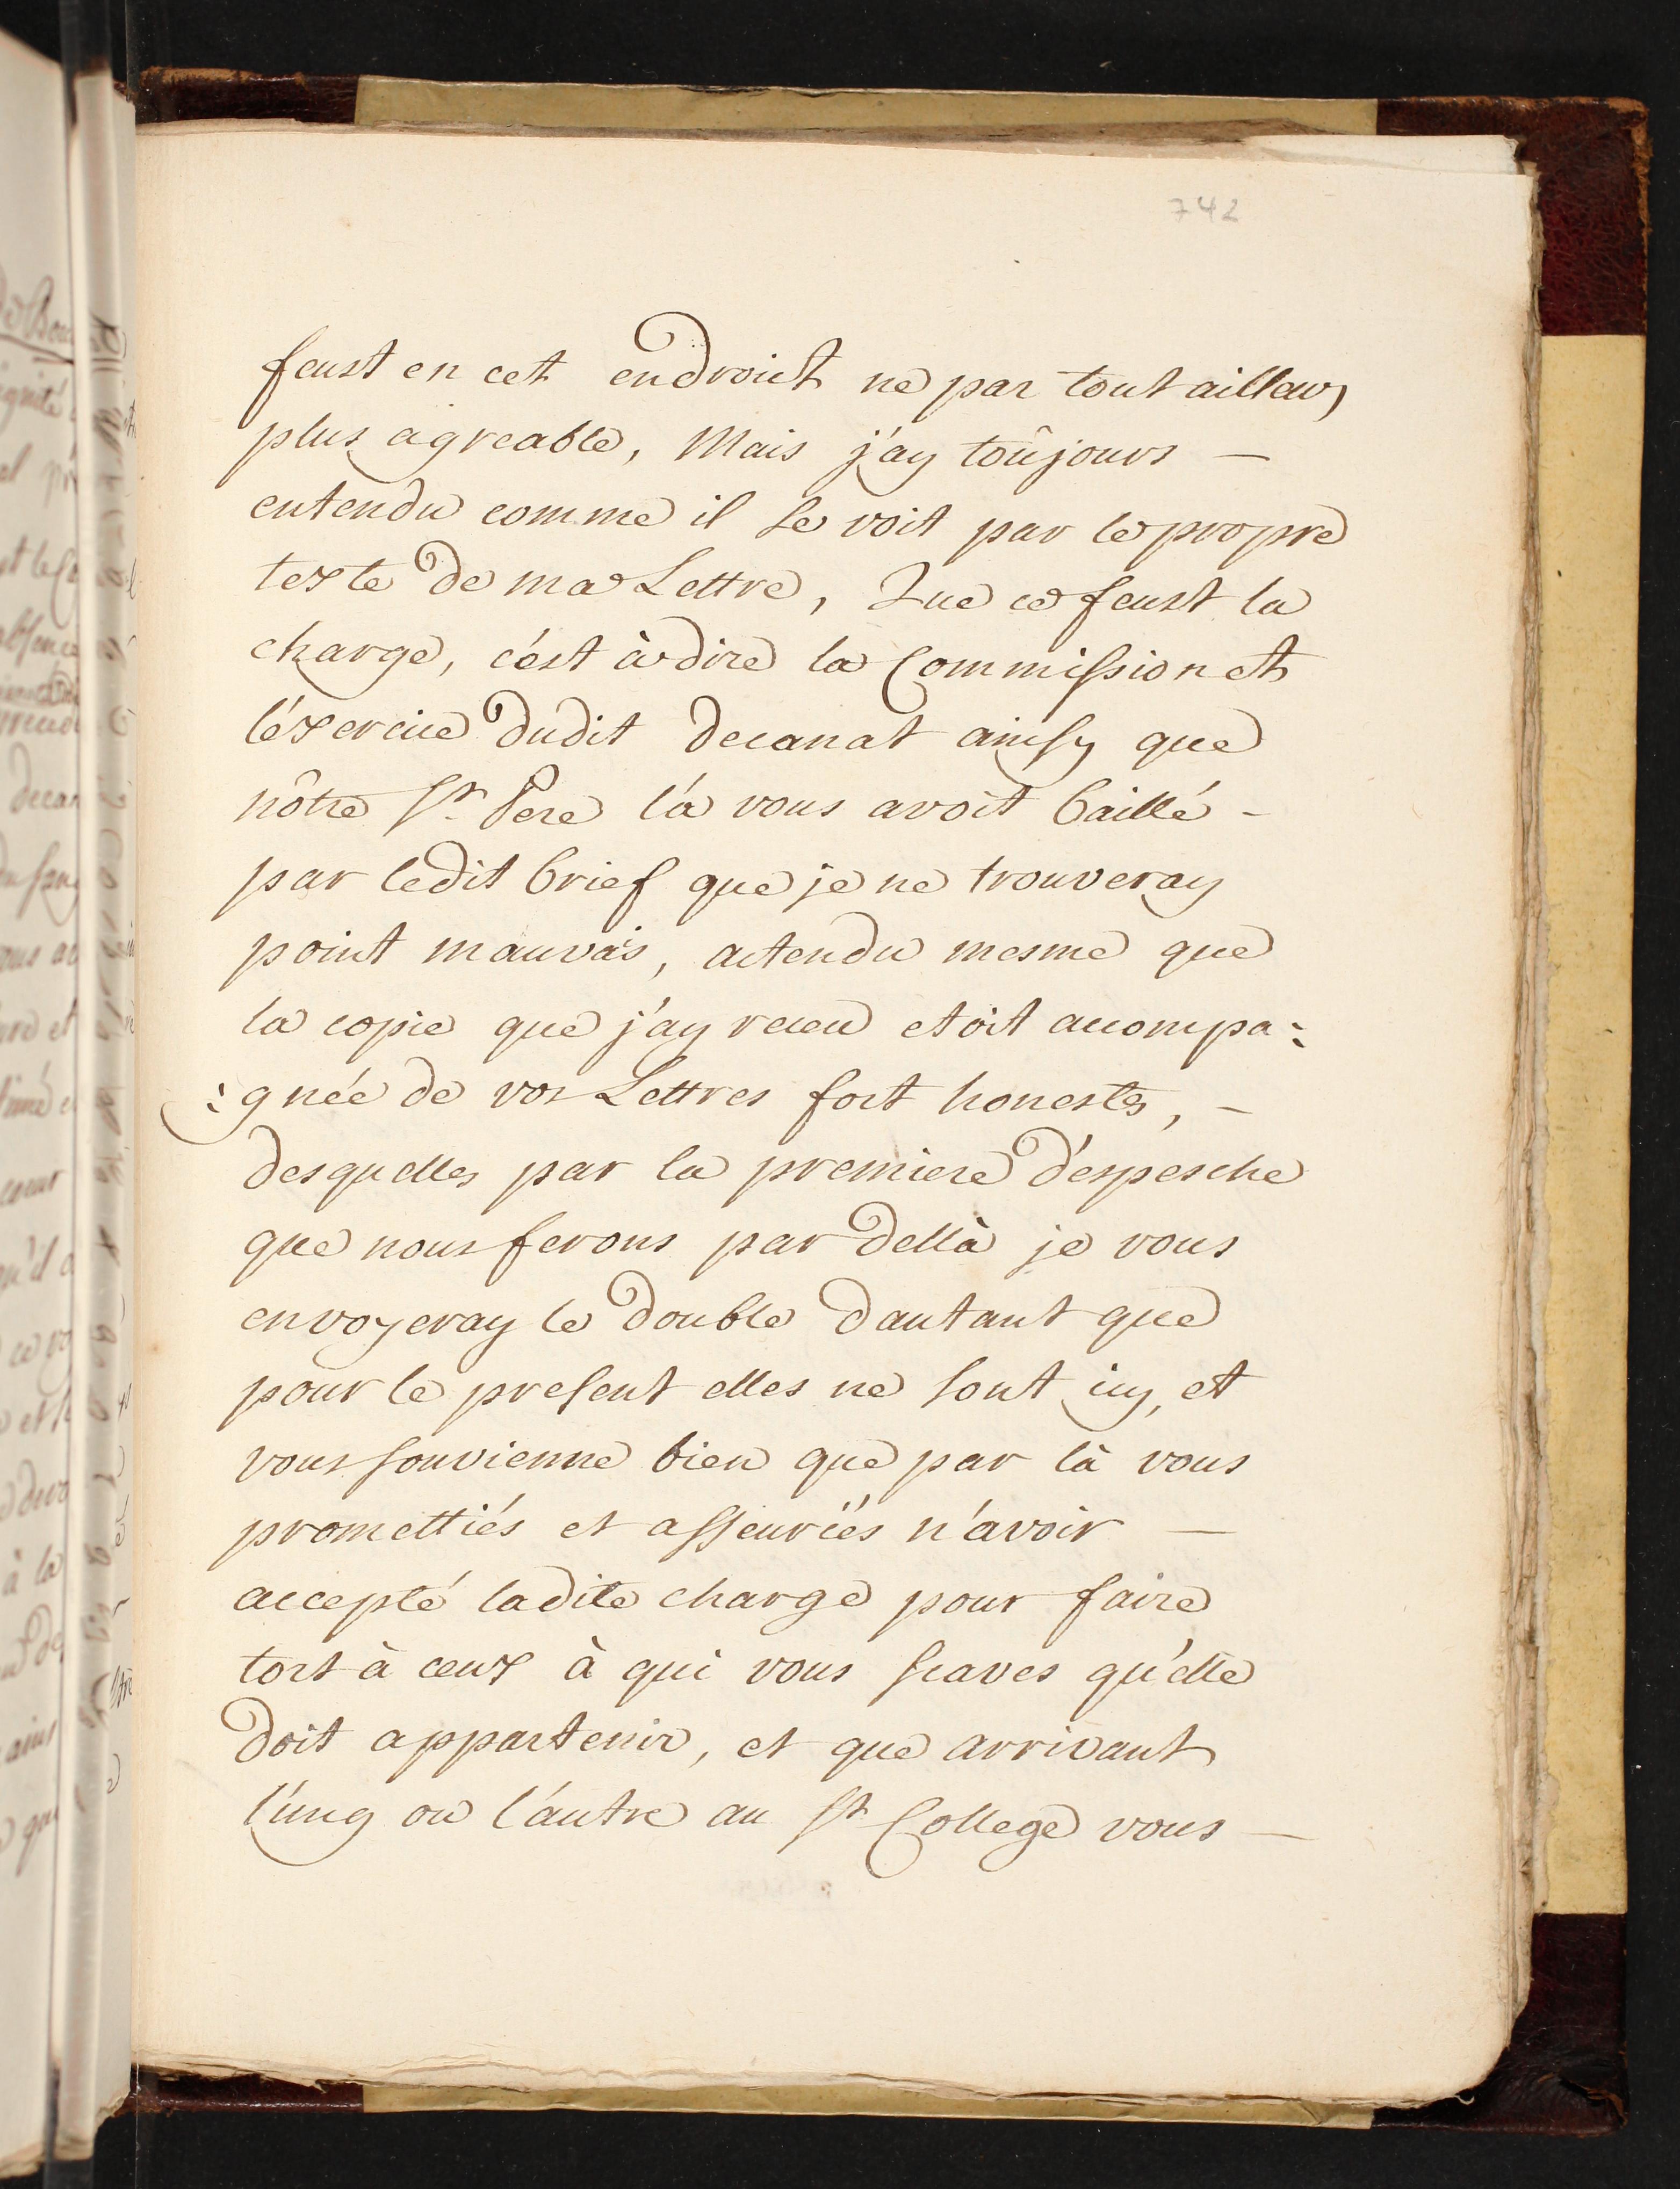 742
feust en cet endroict ne par tout ailleurs
plus agreable, Mais j'ay toûjours —
entendu comme il se voit par le propre
texte de ma Lettre, Que ce feust la
charge, c'ést à dire la Commission et
l'éxercice dudit decanat ainsy que
nôtre St. Pere l'a vous avoit baillé -
par ledit brief que je ne trouveray
point mauvais, attendu mesme que
la copie que j'ay receu etoit accompa:
:gnée de vos Lettres fort honestes, -
desquelles par la premiere déspesche
que nous ferons par dellà je vous
envoyeray le double dautant que
pour le present elles ne sont icy, et
vous souvienne bien que par là vous
promettiés et asseuriés n'avoir —
accepté ladite charge pour faire
tort à ceux à qui vous scaves qu'elle
doit appartenir, et que arrivant
l'ung ou l'autre au St College vous —